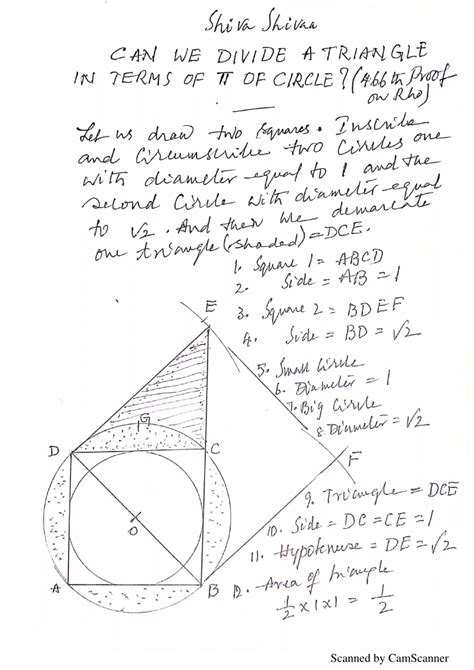 Shiva Shivaa
CAN WE DIVIDE A TRIANGLE
IN TERMS OF π OF CIRCLE? (466th Proof
on Rho)
Let us draw two squares. Inscribe
and Circumscribe two Circles one
with diameter equal to 1 and the
second Circle with diameter equal
to √2. And then we demarcate
one triangle (shaded) = DCE.
1. Square 1 = ABCD
2. Side = AB = 1
3. Square 2 = BDEF
4. Side = BD = √2
5. Small Circle
6. Diameter = 1
7. Big Circle
8. Diameter = √2
E
G
D
C
F
O
A
B
9. Triangle = DCE
10. Side = DC = CE = 1
11. Hypotenuse = DE = √2
12. Area of triangle
1/2 x 1 x 1 = 1/2
Scanned by CamScanner